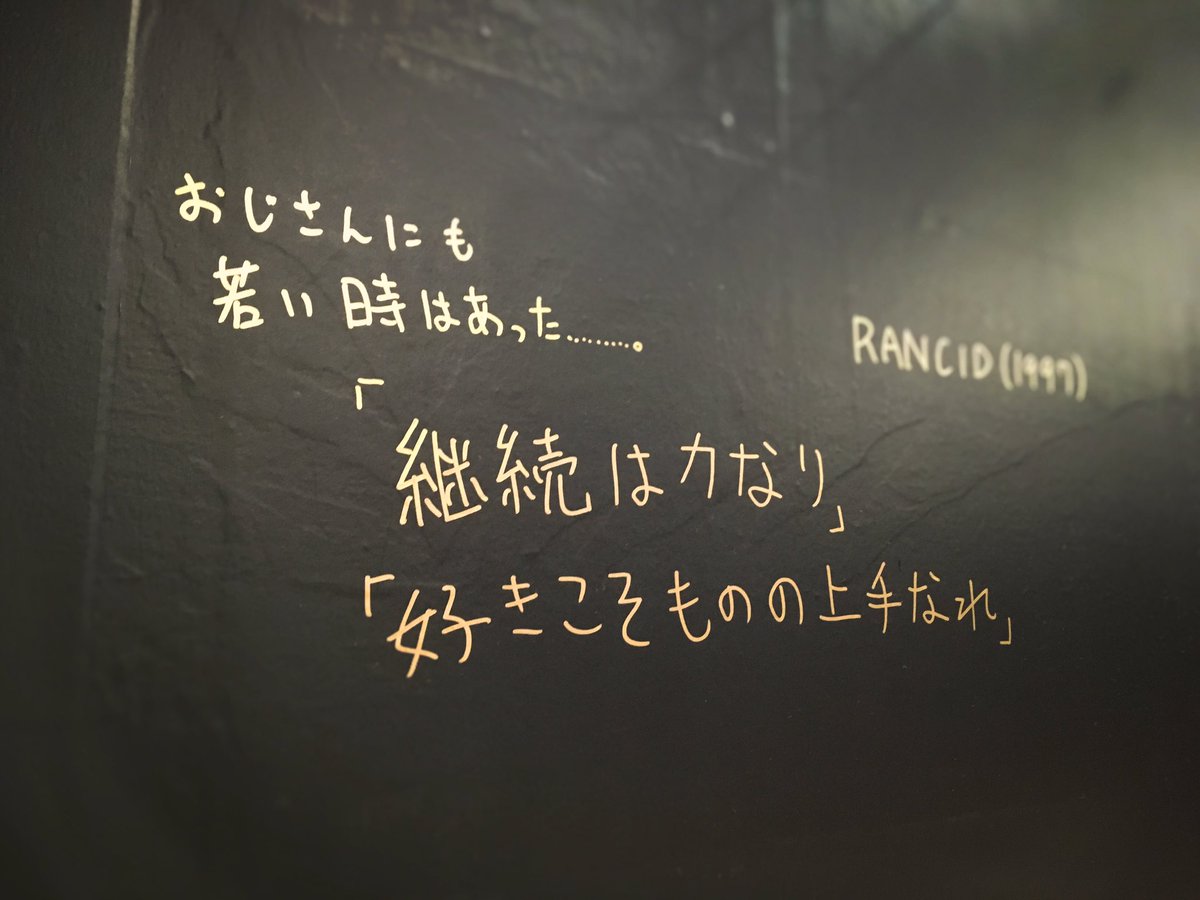 おじさんにも
若い時はあった………。
RANCID(1997)
「継続は力なり」
「好きこそものの上手なれ」